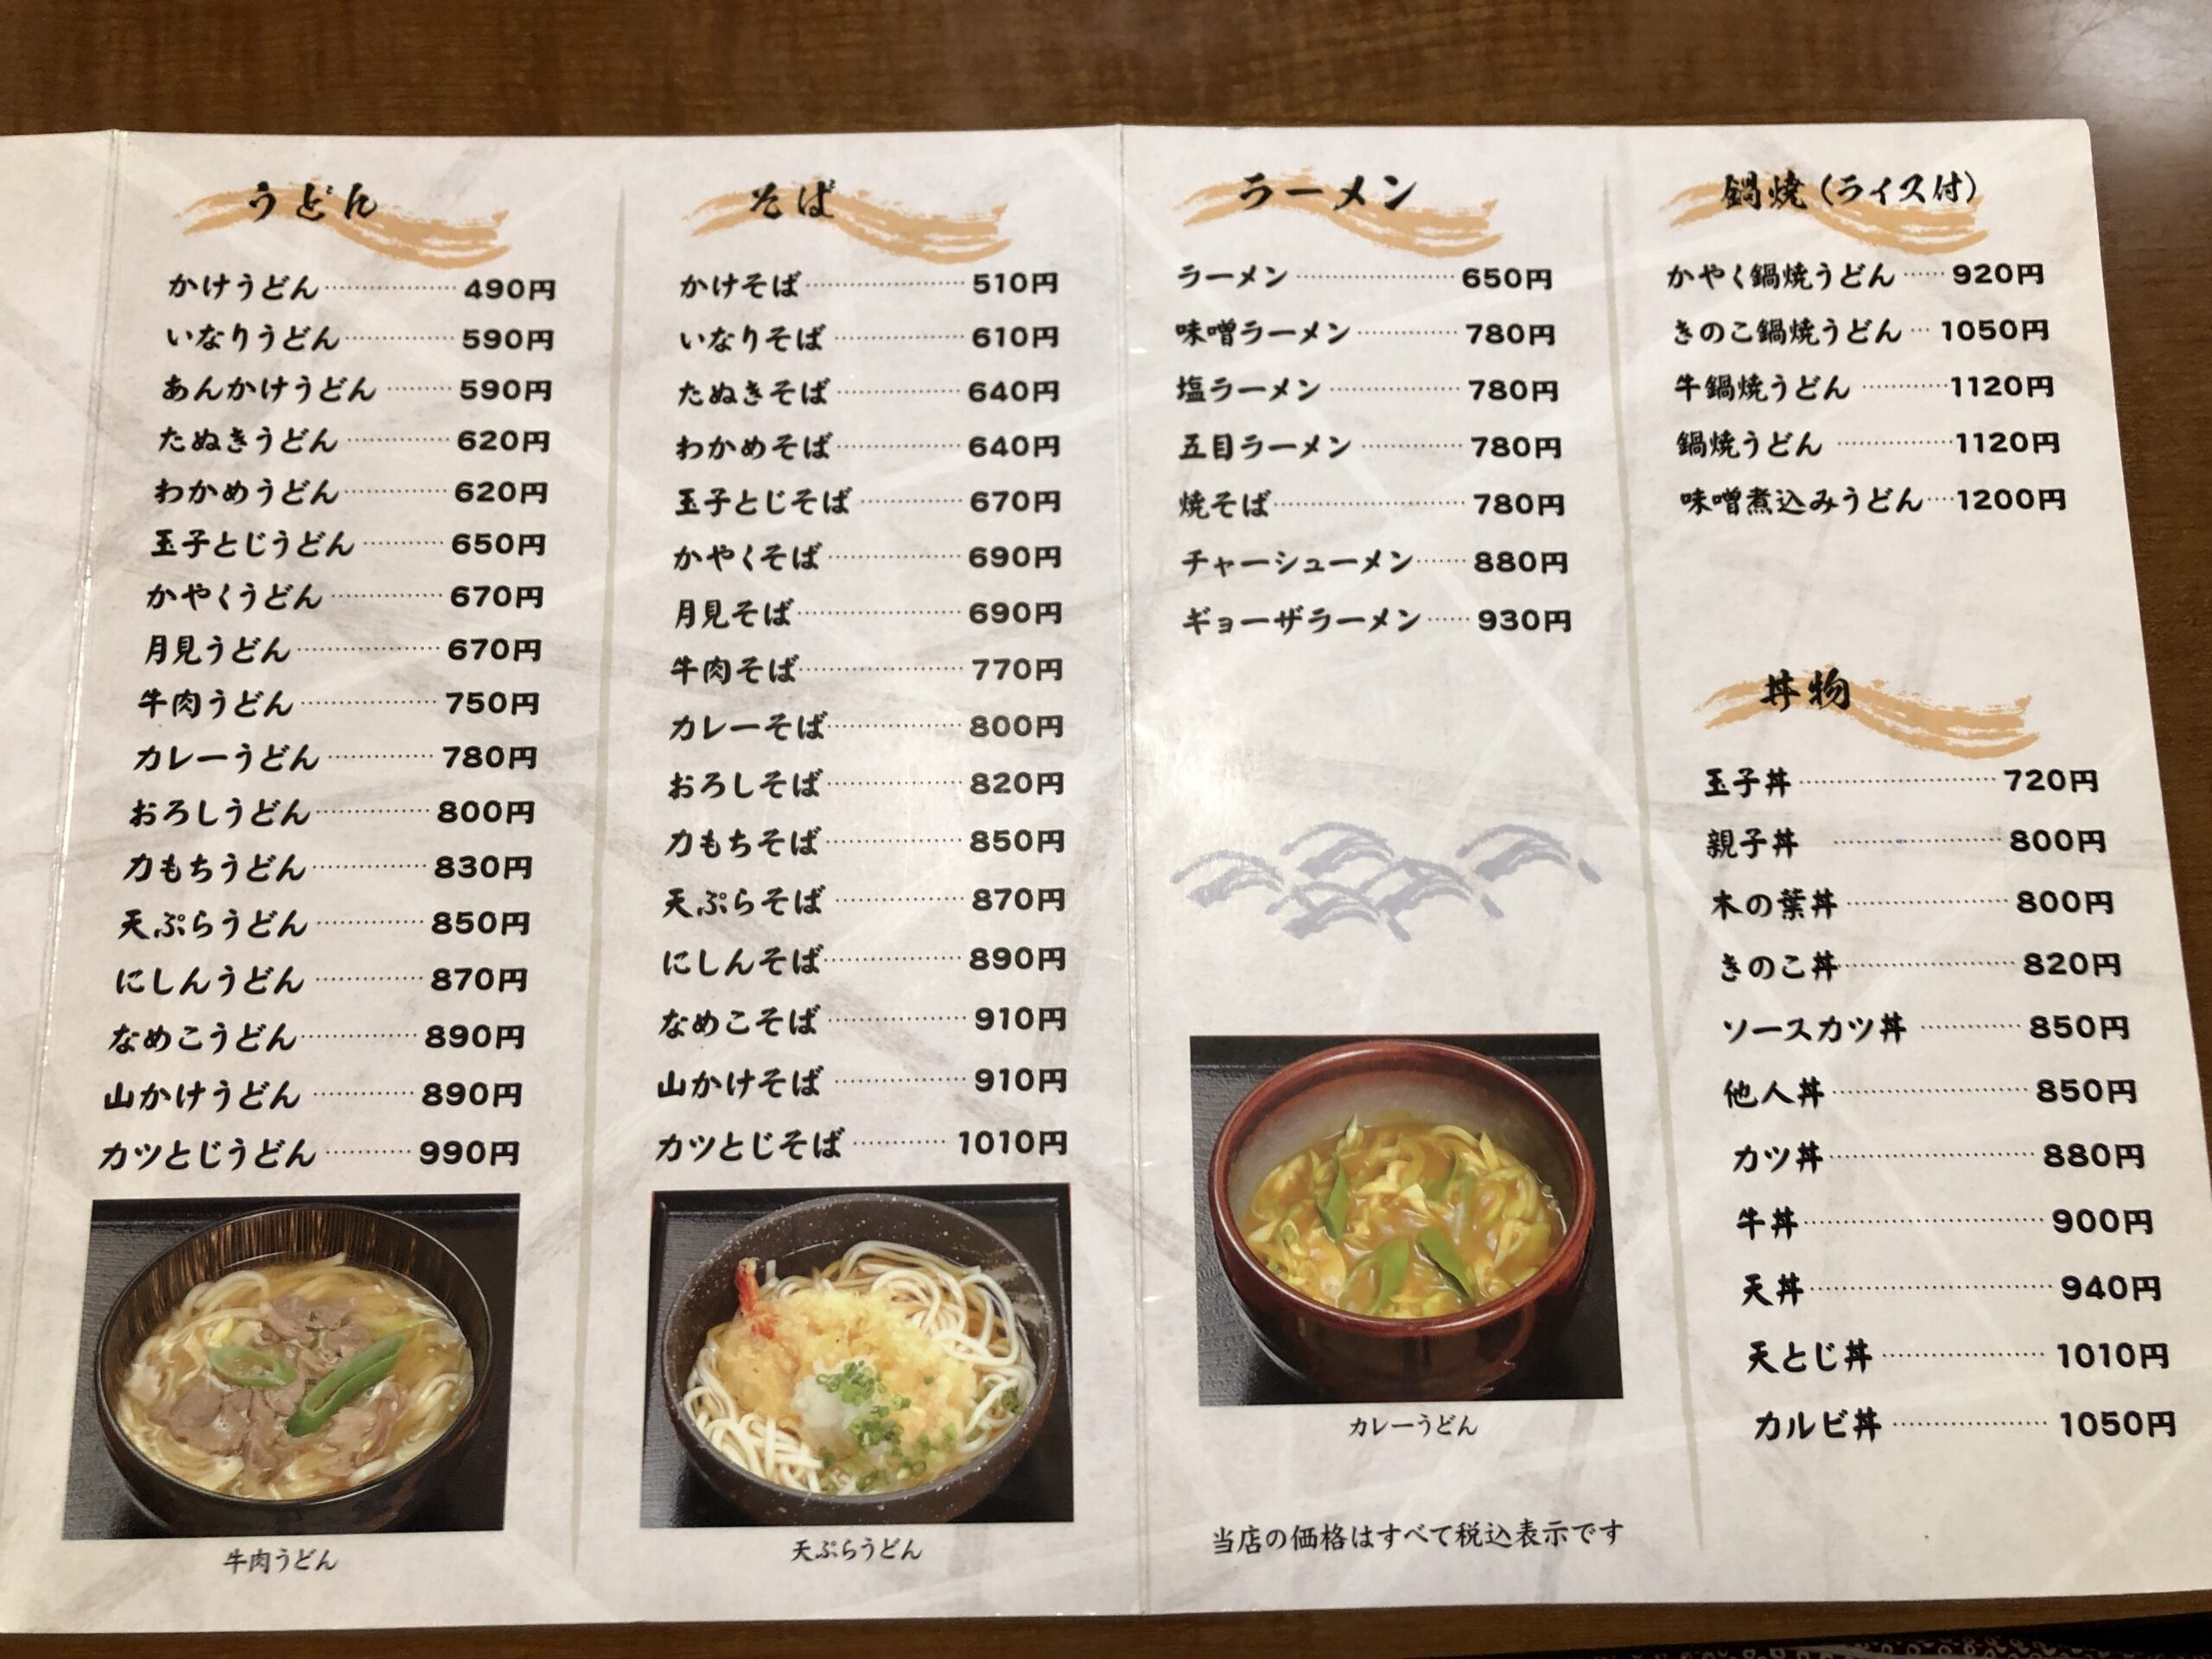 うどん
かけうどん 490円
いなりうどん 590円
あんかけうどん 590円
たぬきうどん 620円
わかめうどん 620円
玉子とじうどん 650円
かやくうどん 670円
月見うどん 670円
牛肉うどん 750円
カレーうどん 780円
おろしうどん 800円
力もちうどん 830円
天ぷらうどん 850円
にしんうどん 870円
なめこうどん 890円
山かけうどん 890円
カツとじうどん 990円
牛肉うどん
そば
かけそば 510円
いなりそば 610円
たぬきそば 640円
わかめそば 640円
玉子とじそば 670円
かやくそば 690円
月見そば 690円
牛肉そば 770円
カレーそば 800円
おろしそば 820円
力もちそば 850円
天ぷらそば 870円
にしんそば 890円
なめこそば 910円
山かけそば 910円
カツとじそば 1010円
天ぷらうどん
ラーメン
ラーメン 650円
味噌ラーメン 780円
塩ラーメン 780円
五目ラーメン 780円
焼そば 780円
チャーシューメン 880円
ギョーザラーメン 930円
カレーうどん
当店の価格はすべて税込表示です
鍋焼(ライス付)
かやく鍋焼うどん 920円
きのこ鍋焼うどん 1050円
牛鍋焼うどん 1120円
鍋焼うどん 1120円
味噌煮込みうどん 1200円
丼物
玉子丼 720円
親子丼 800円
木の葉丼 800円
きのこ丼 820円
ソースカツ丼 850円
他人丼 850円
カツ丼 880円
牛丼 900円
天丼 940円
天とじ丼 1010円
カルビ丼 1050円